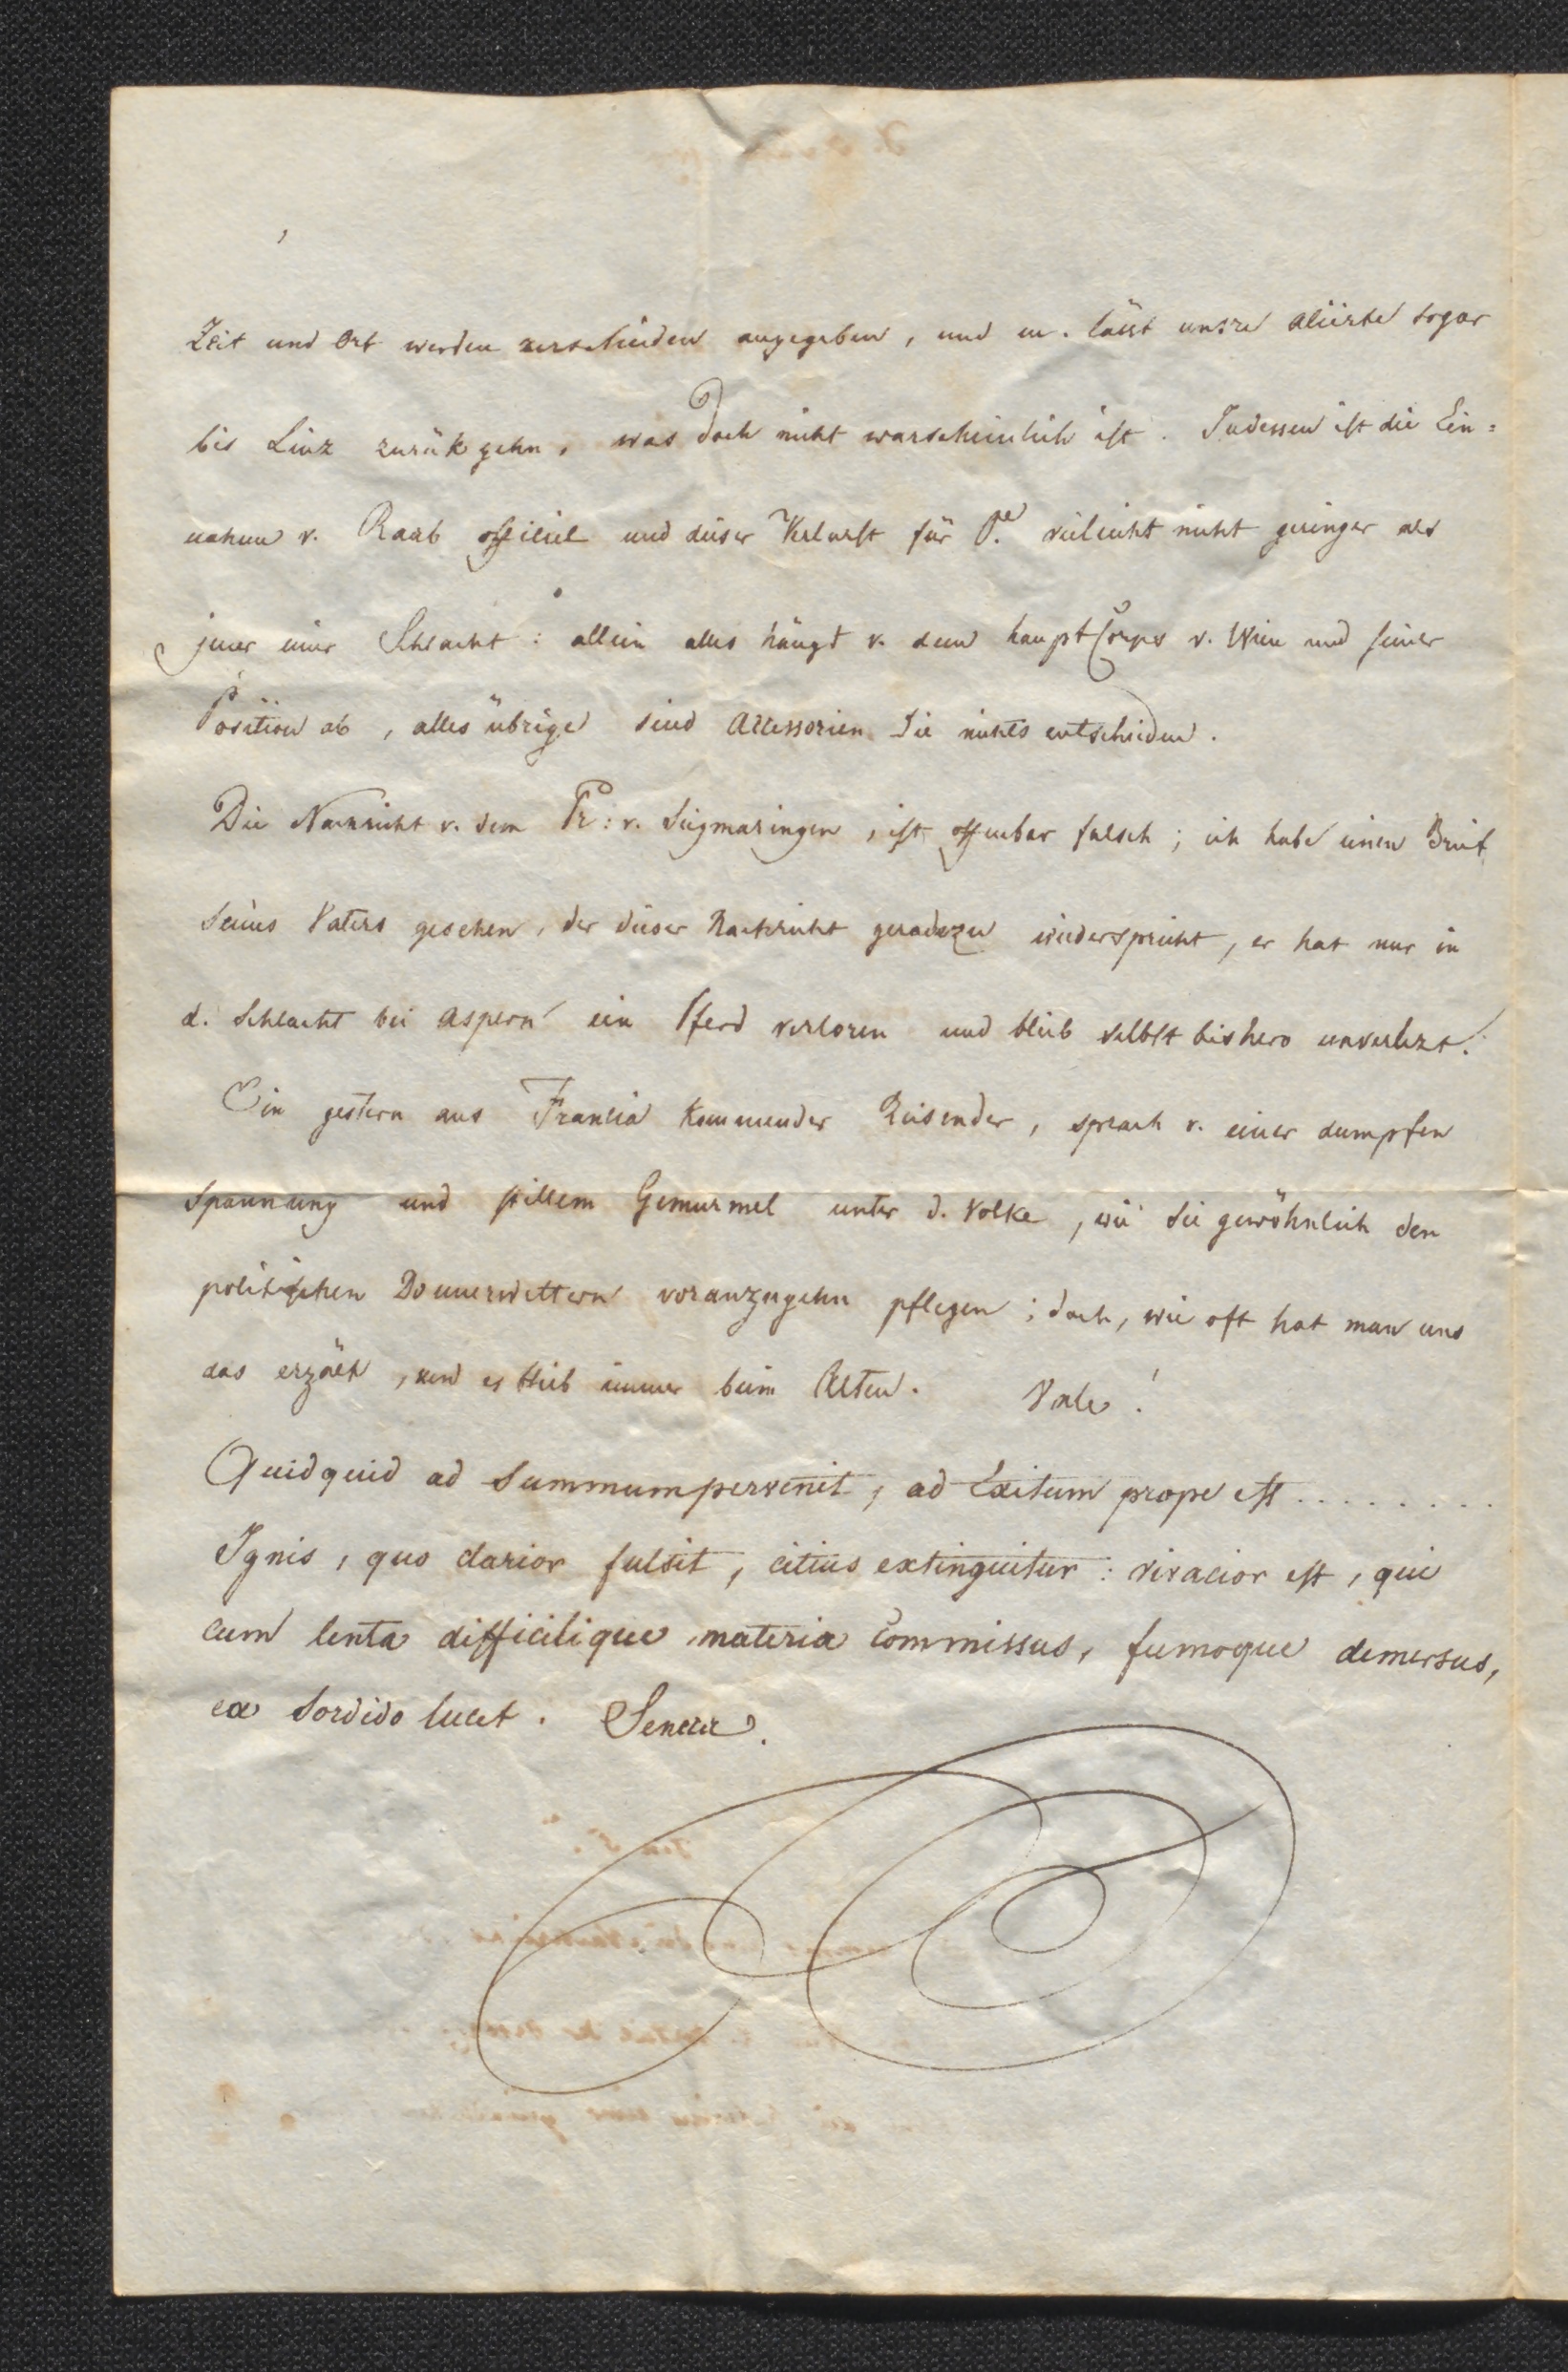 Zeit und Ort werden verschieden angegeben, und m. lässt unsre Aliirte sogar
bis Linz zurük gehn, was doch nicht warscheinlich ist. Indessen ist die Ein=
nahme v. Raab officiel und dieser Verlurst für vieleicht nicht geringer als
jener einer Schlacht: allein alles hängt v. dem haupt Corps v. Wien und seiner
Position ab, alles übrige sind Accessorien die nichts entscheiden.
Die Nachricht v. dem Pr: v. Siegmaringen, ist offenbar falsch; ich habe einen Brief
seines Vaters gesehen, der dieser Nachricht geradezu wiederspricht, er hat nur in
d. Schlacht bei Aspern ein Pferd verloren und blieb selbst bishero unverlezt.
Ein gestern aus Francia kommender Reisender, sprach v. einer dumpfen
Spannung und stillem Gemurmel unter d. Volke, wie sie gewöhnlich den
politischen Donnerwettern voranzugehn pflegen; doch, wie oft hat man uns
das erzält, und es blieb immer beim Alten. Vale!
Quidquid ad summum pervenit, ad Exitum prope est.........
Ignis, quo clarior fulsit, citius extinguitur: vivacior est, qui
cum lenta difficilique materia commissus, fumoque demersus,
ex sordido lucet. Seneca.